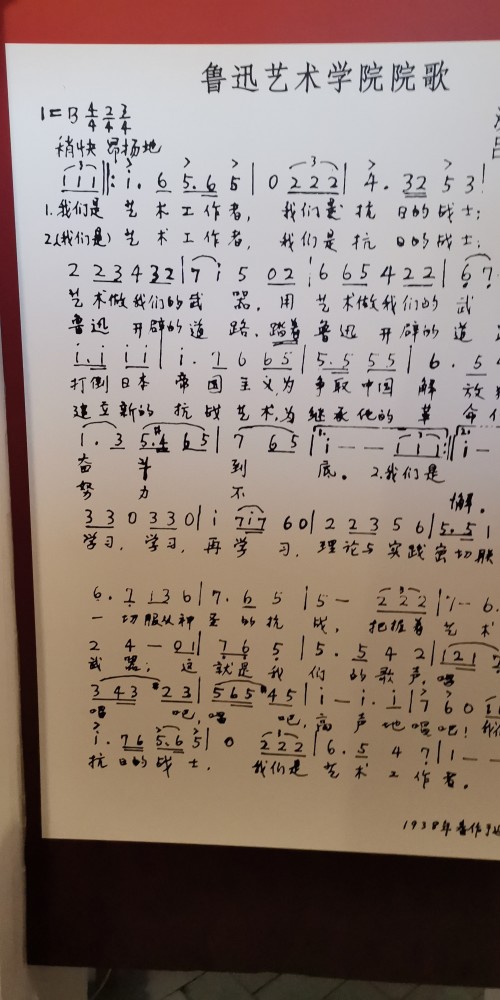 鲁迅艺术学院院歌
1=B 4/4 2/4 3/4
稍快 昂扬地
1 1 1 ‖: i. 6 5. 6 5 | 0 2 2 2 | 4. 3 2 5 3
1.我们是 艺 术 工 作 者, 我们是 抗 日的 战 士;
2.(我们是) 艺 术 工 作 者, 我们是 抗 日的 战 士;
2 2 2 3 4 3 2 | 7 i 5 0 2 | 6 6 5 4 2 2 | 6 7
艺 术做我们的 武 器. 用 艺 术做我们的 武
鲁迅 开辟的道 路. 踏着 鲁迅 开辟的 道
i. i i i | i. 7 6 6 5 | 5. 5 5 5 | 6. 5 4
打倒日本 帝 国 主 义,为 争取中国 解 放
建立新的 抗 战 艺 术,为 继承他的 革 命
1. 3 5. #4 6 5 | 7 6 5 | 1. i - - i i i :‖ 2. i -
奋 斗 到 底。 2.我们是
努 力 不 懈。
3 3 0 3 3 0 | i 7 i 7 6 0 | 2 2 3 5 6 | 5. 5 1
学习, 学习, 再 学 习, 理论与 实践 密切联
6. 7 1 3 6 | 7. 6 5 | 5 - 2 2 2 | 1 - 6.
一 切服从神 圣 的 抗 战, 把握着 艺 术
2 4 - 0 1 | 7 6 5 | 5. 5 4 2 | 1 2 1 7
武 器; 这 就是 我 们 的 歌 声, 唱
3 4 3 #2 3 | 5 6 5 #4 5 | i - i. i | 7 6 0 i i
唱 吧, 唱 吧, 高 声 地 唱 吧! 我们
i. 7 6 5. 6 5 | 0 2 2 2 | 6. 5 4 7 | 1 - -
抗 日的 战 士. 我们是 艺 术 工 作 者。
1938年春作于延